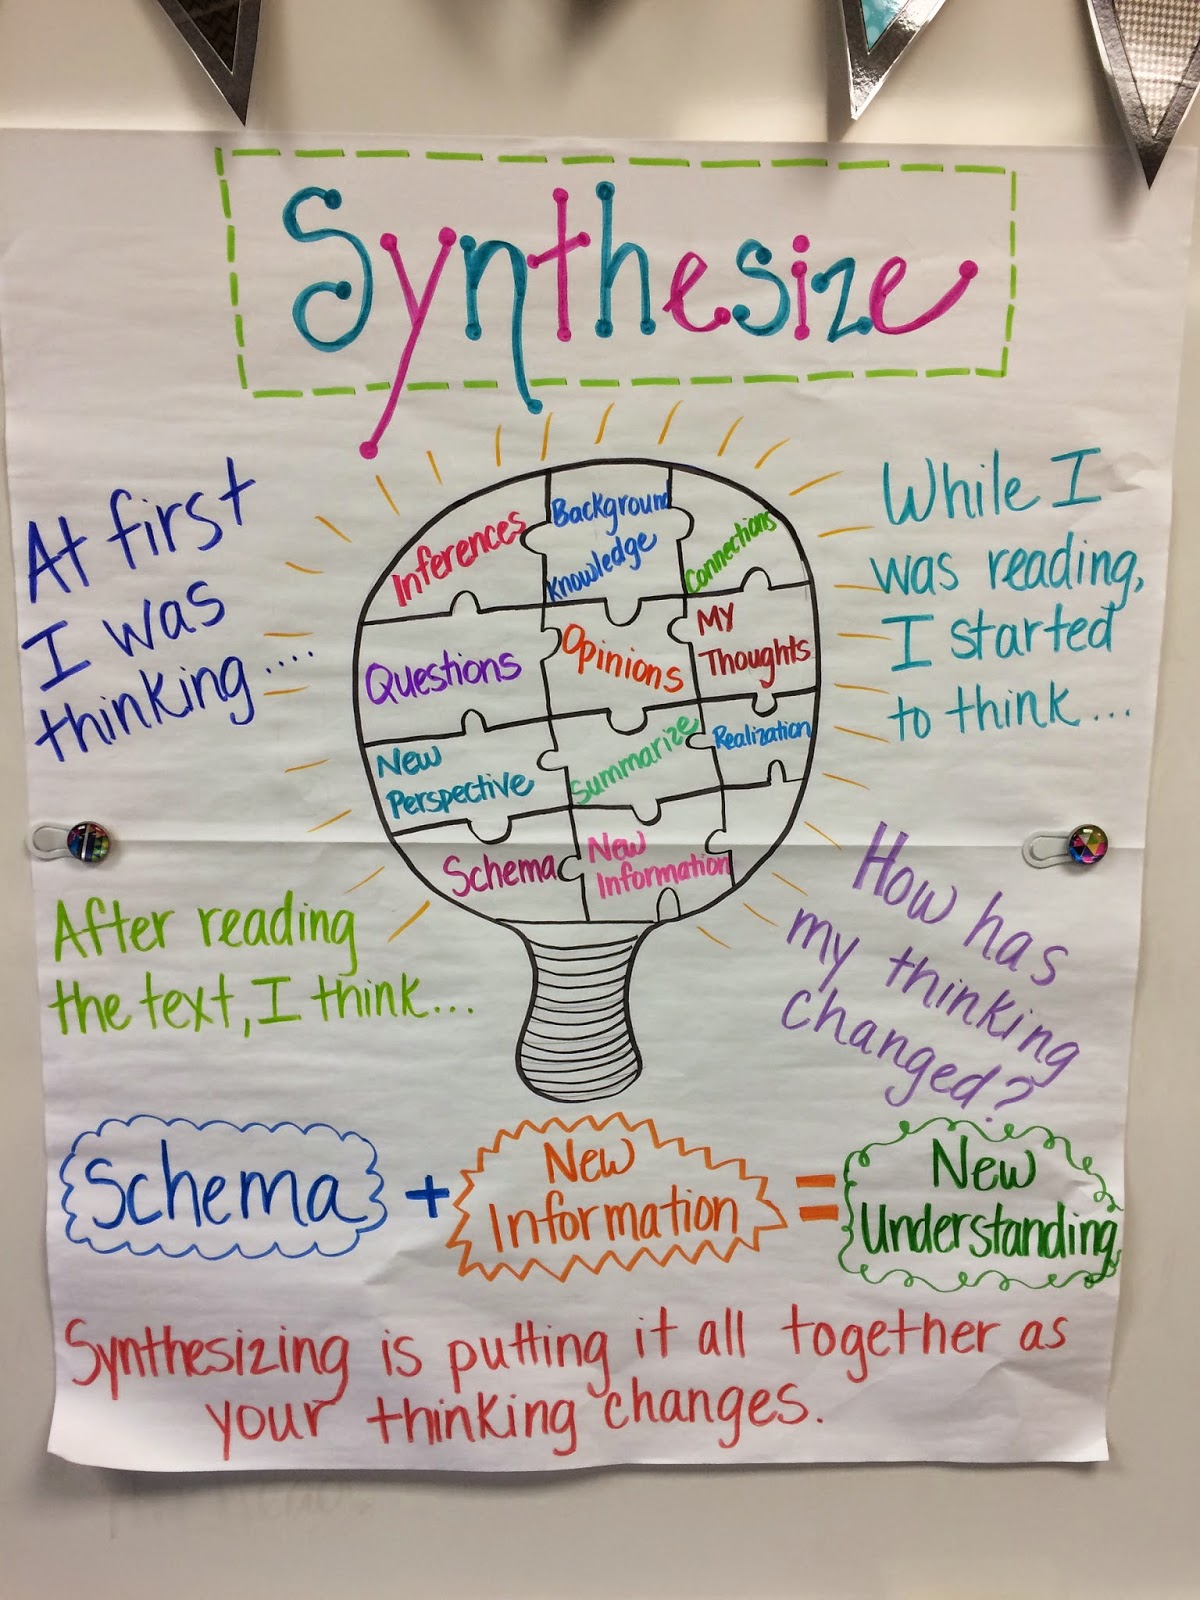 Synthesize
At first
I was
thinking....
While I
was reading,
I started
to think...
Inferences
Background
Knowledge
Connections
Questions
Opinions
My
Thoughts
New
Perspective
Summarize
Realization
Schema
New
Information
After reading
the text, I think...
How has
my thinking
changed?
Schema + New Information = New Understanding
Synthesizing is putting it all together as
your thinking changes.